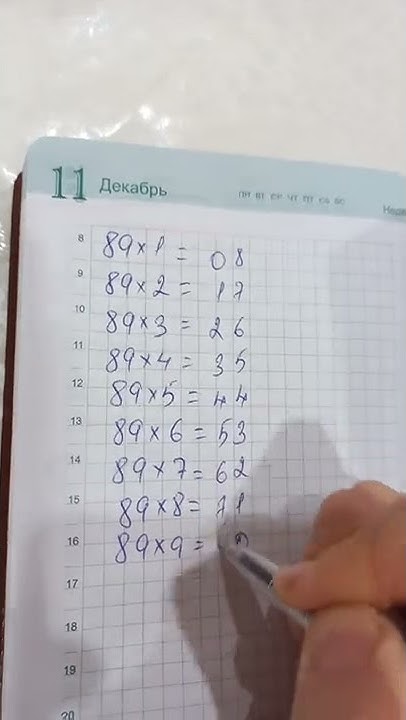 11 Декабрь
пн вт ср чт пт сб вс
8 89×1 = 08
9 89×2 = 17
10 89×3 = 26
11 89×4 = 35
12 89×5 = 44
13 89×6 = 53
14 89×7 = 62
15 89×8 = 71
16 89×9 =
17
18
19
20